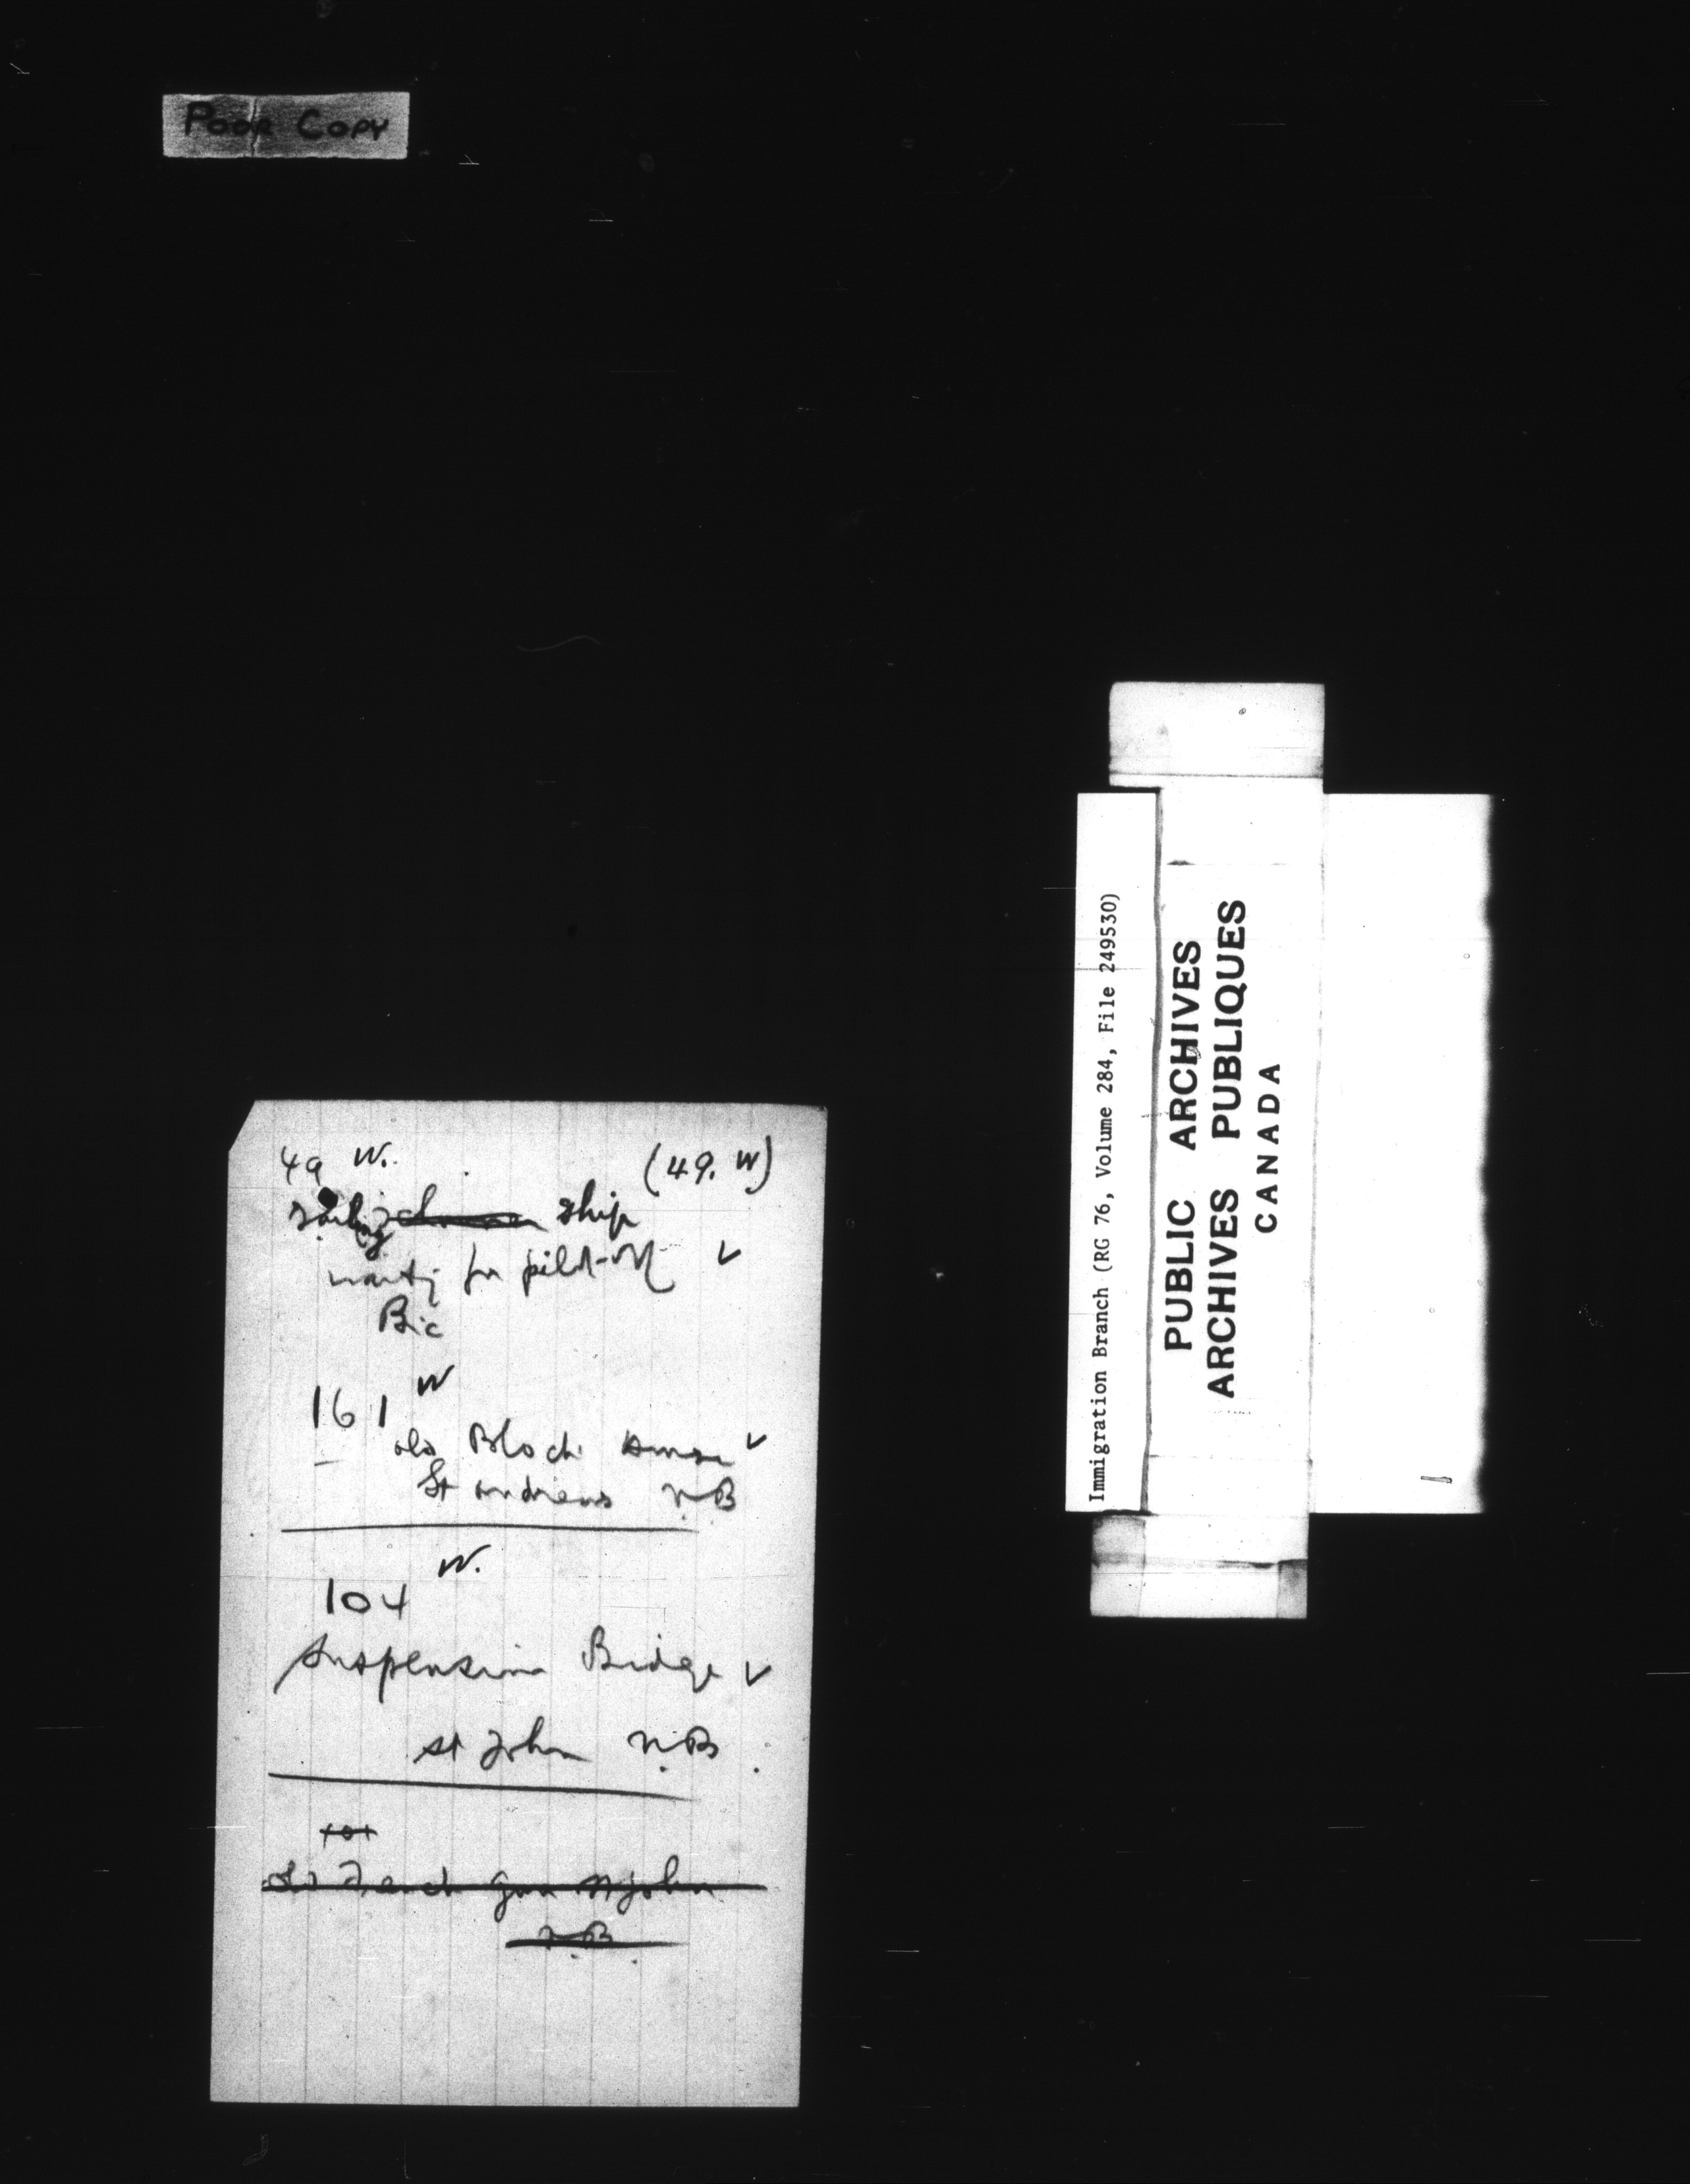 Poor Copy
49 W. (49. W)
Sailing ship
waiting for pilot off ✓
Bic
161 W
old Block house ✓
St andrews N.B
104 W.
Suspension Bridge ✓
St John N.B.
101
old French gun St John
N.B.
Immigration Branch (RG 76, Volume 284, File 249530)
PUBLIC ARCHIVES
ARCHIVES PUBLIQUES
CANADA